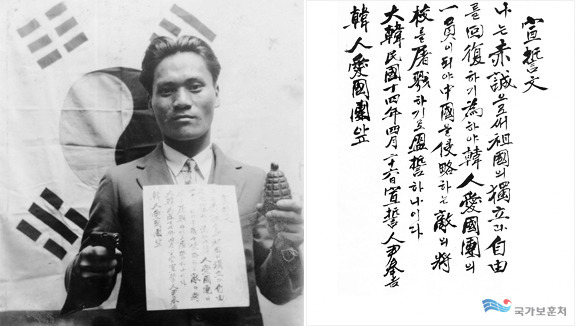 韓人愛國團앞
宣誓文
나는 赤誠으로써 祖國의 獨立과 自由
를 回復하기 爲하야 韓人愛國團의
一員이 되야 中國을 侵略하는 敵의 將
校를 屠戮하기로 盟誓하나이다
大韓民國十四年四月二十六日 宣誓人 尹奉吉
韓人愛國團앞
국가보훈처